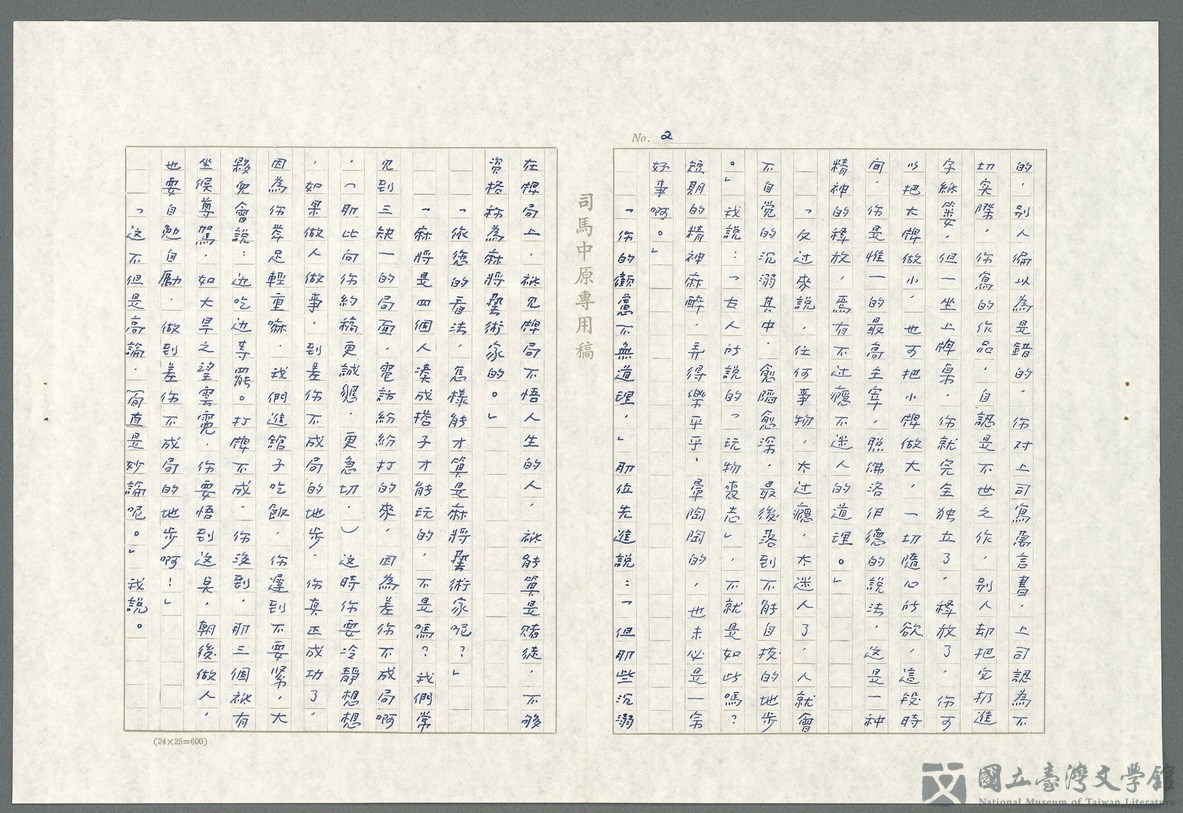 No. 2
的，別人偏以為是錯的，你对上司寫萬言書，上司認為不
切实際，你寫的作品，自認是不世之作，別人却把它扔進
字紙簍，但一坐上牌桌，你就完全独立了，釋放了，你可
以把大牌做小，也可把小牌做大，一切隨心所欲，這段時
间，你是惟一的最高主宰，照佛洛伊德的說法，这是一种
精神的釋放，焉有不过癮不迷人的道理。」
「反过來說，任何事物，太过癮，太迷人了，人就會
不自覚的沉溺其中，愈陷愈深，最後落到不能自拔的地步
。」我說：「古人所說的「玩物喪志」，不就是如此嗎？
短期的精神麻醉，弄得樂乎乎，暈陶陶的，也未必是一件
好事啊。」
「你的顧慮不無道理，」那位先進說：「但那些沉溺
司馬中原專用稿
在牌局上，祇見牌局不悟人生的人，祇能算是賭徒，不够
資格称為麻將藝術家的。」
「依您的看法，怎樣能才算是麻將藝術家呢？」
「麻將是四個人湊成搭子才能玩的，不是嗎？我們常
見到三缺一的局面，電話紛紛打的來，因為差你不成局啊
，（那比向你約稿更誠懇，更急切，）这時你要冷靜想想
，如果做人做事，到差你不成局的地步，你真正成功了，
因為你举足輕重嘛，我們進館子吃飯，你遲到不要緊，大
夥兒會說：边吃边等罷。打牌不成，你沒到，那三個祇有
坐候尊駕，如大旱之望雲霓，你要悟到这奌，朝後做人，
也要自勉自勵，做到差你不成局的地步啊！」
「这不但是高論，简直是妙論呢。」我說。
(24×25=600)
國立臺灣文學館
National Museum of Taiwan Literature